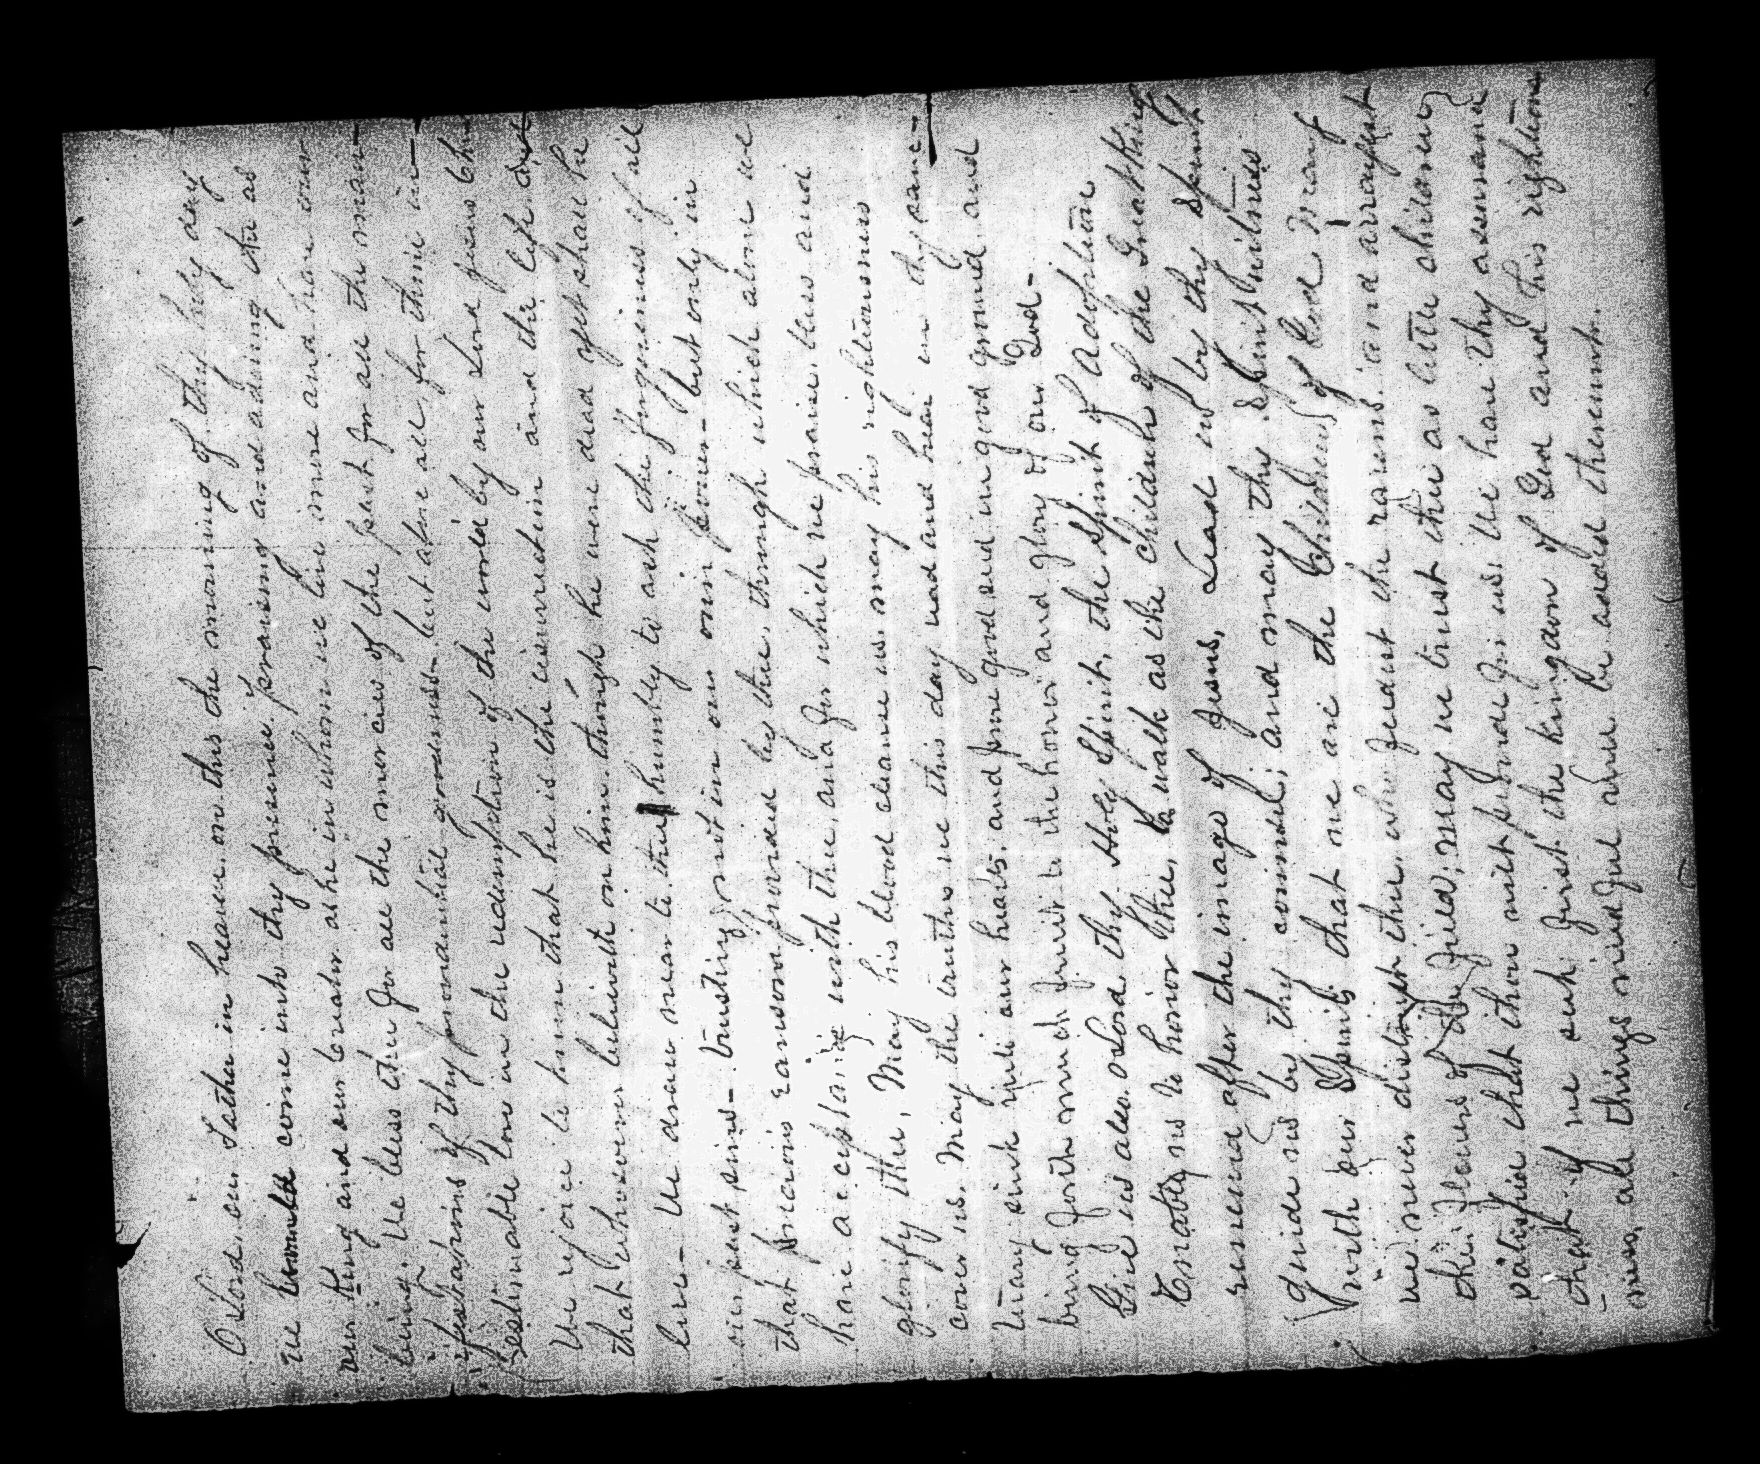 O Lord, our Father in heaven, on this the morning of thy holy day
we come into thy presence, praising and adoring thee as
our King and our Creator as he in whom we live move and have our
being. We bless thee for all the mercies of the past for all the mani-
festations of thy providential goodness but above all, for thine in-
estimable love in the redemption of the world by our Lord Jesus Christ
We rejoice to know that he is the resurrection and the life and
that whosoever believeth on him though he were dead yet shall he
live - We draw near to thee humbly to ask the forgiveness of all
our past sins - trusting not in our own power - but only in
that precious ransom provided by thee, through which alone we
have acceptance with thee, and for which we praise, bless and
glorify thee, May his blood cleanse us, may his righteousness
cover us. May the truths we this day read and hear in thy sanc-
tuary sink into our hearts, and prove good seed in good ground and
bring forth much fruit to the honor and glory of our God -
Give us also, o Lord thy Holy Spirit, the Spirit of adoption
Enable us to honor thee, to walk as the children of the Great King
renewed after the image of Jesus, Lead us by thy Spirit
guide us by thy counsel; and may thy Spirit witness
with our Spirit that we are the Children of God may
we never distrust thee, who feedest the ravens, and arrayest
the flowers of the field; may we trust thee as little children
satisfied that thou wilt provide for us. We have thy assurance
that if we seek first the kingdom of God and his righteous
ness, all things needful shall be added thereunto.